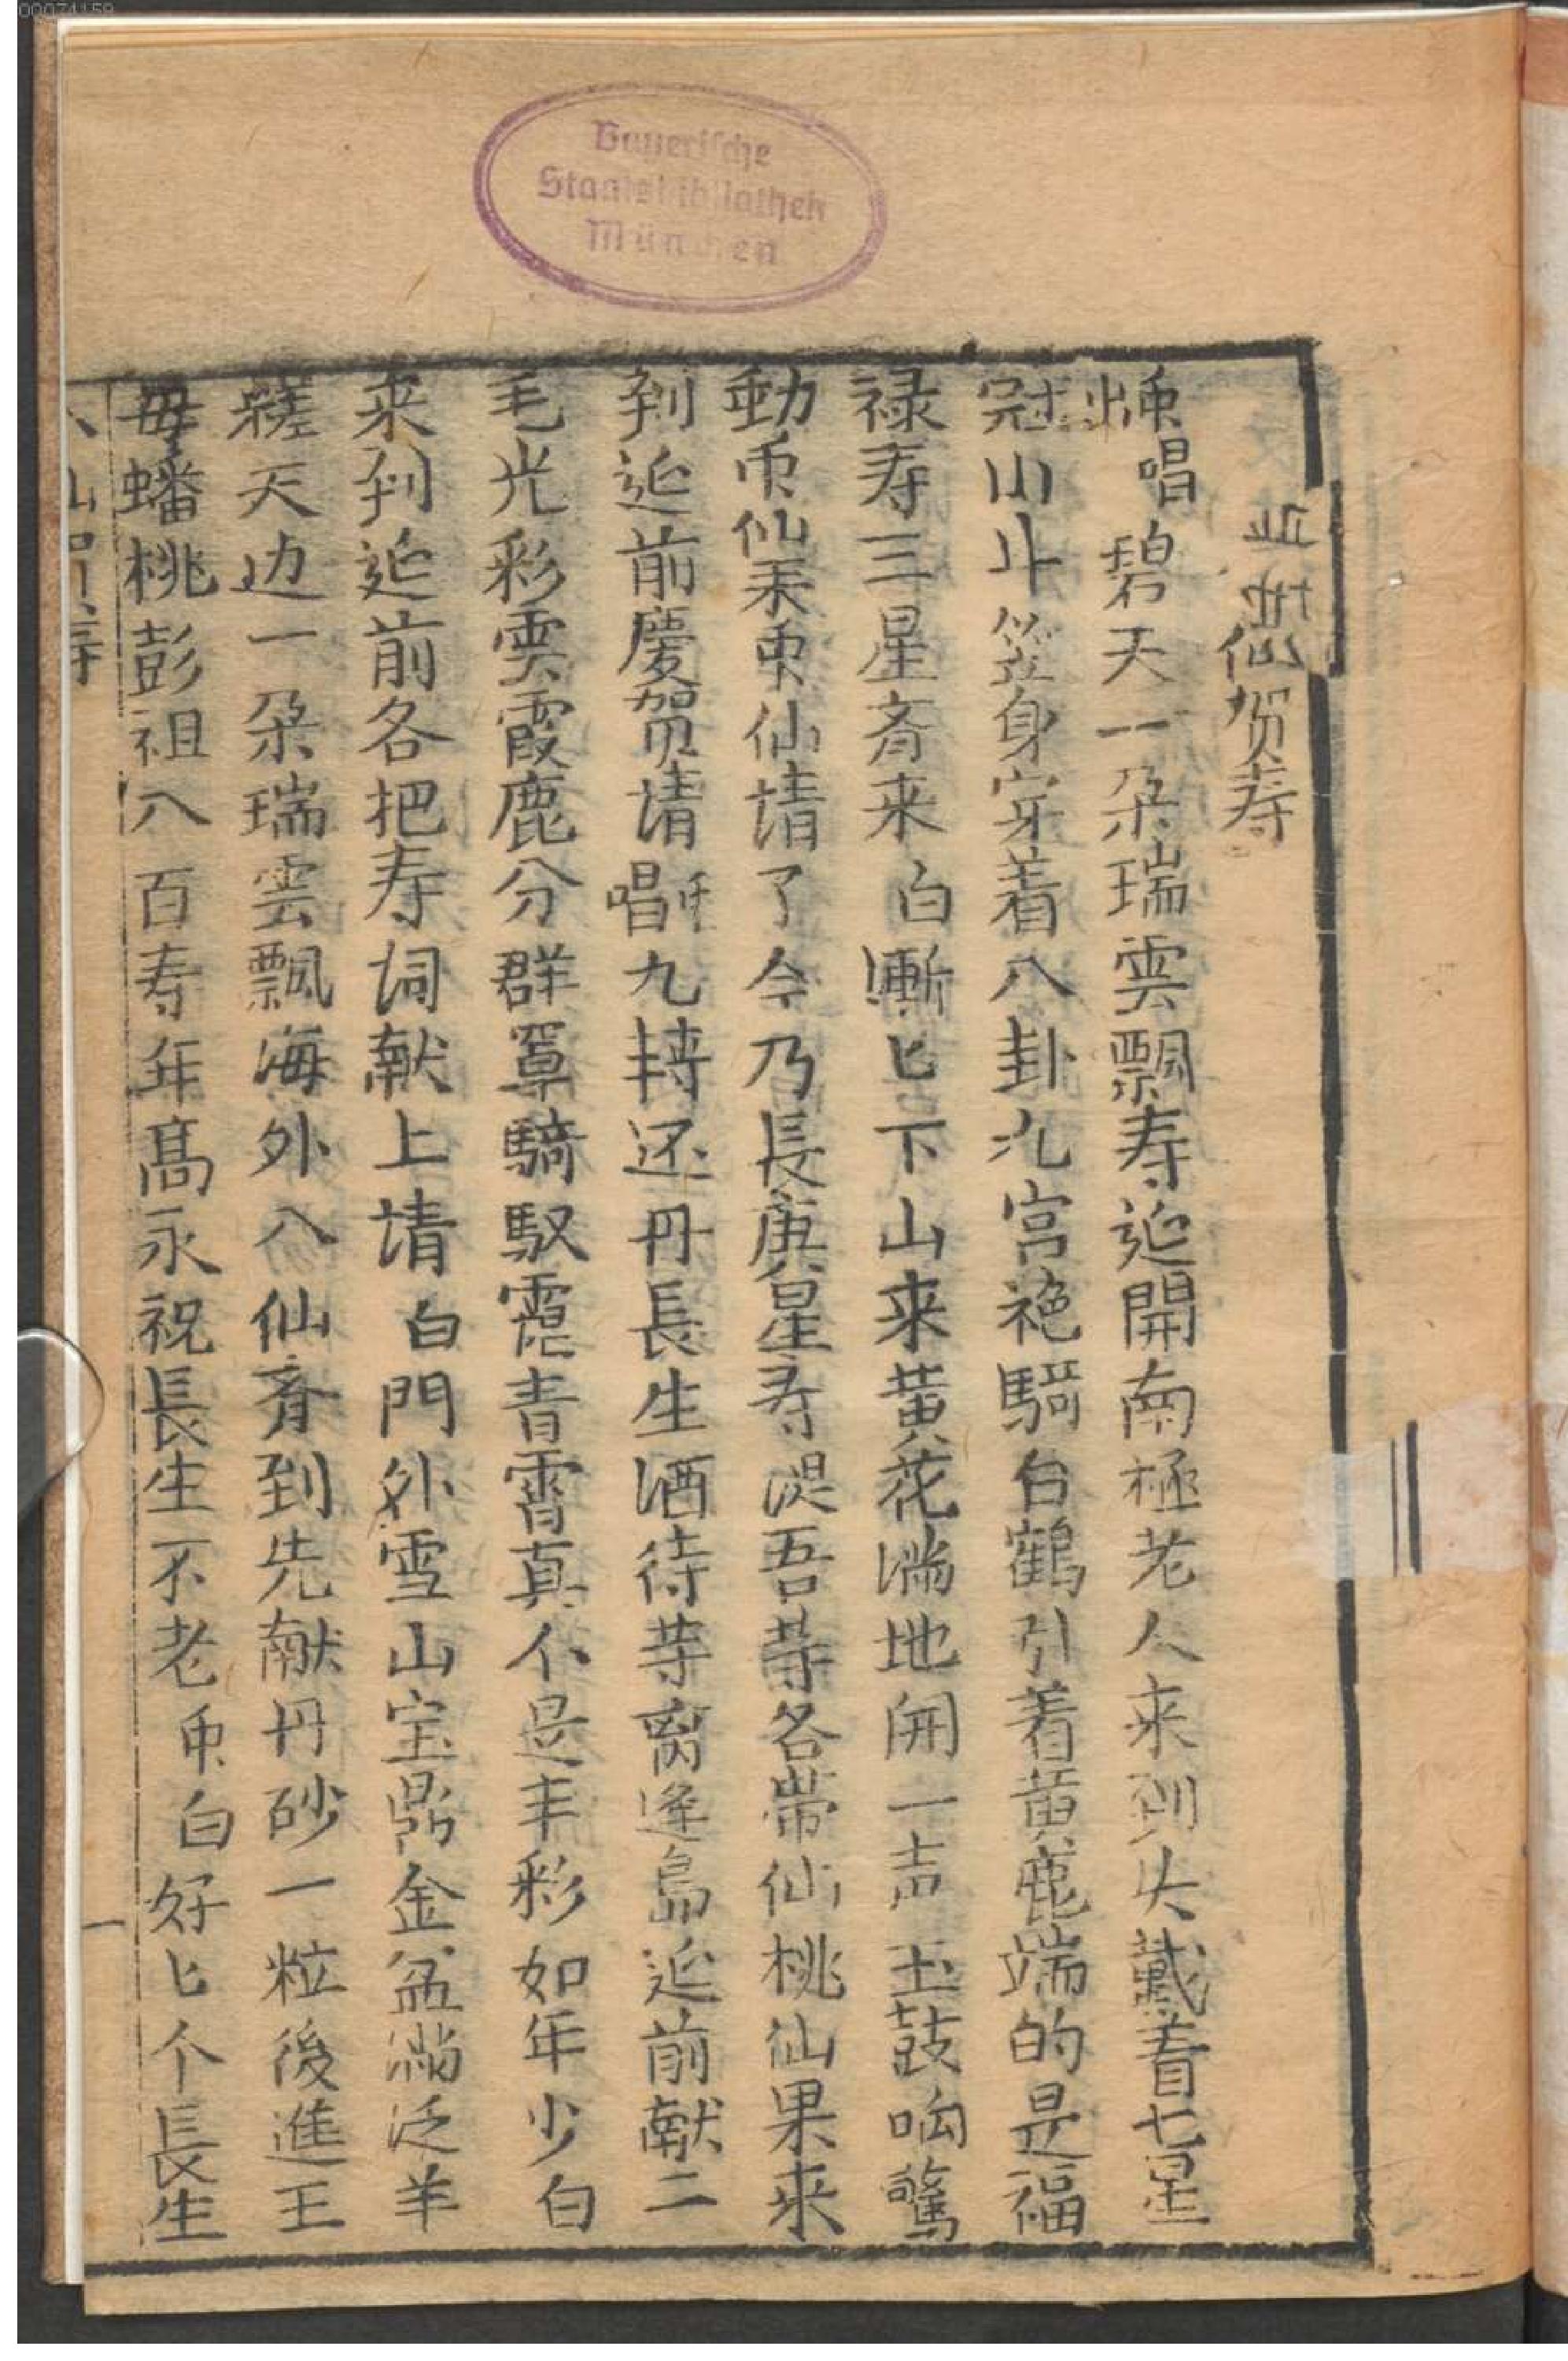 00074159
Bayerische
Staatsbibliothek
München
仙贺寿
唱 碧天一朵瑞雲飄寿延開南極老人来到头戴着七星
冠山斗笠身穿着八卦九宫袍騎白鶴引着黄鹿端的是福
禄寿三星斉来 白 漸匕下山来黄花満地開一声玉鼓响驚
動仙来仙請了今乃長庚星寿涎吾等各帶仙桃仙果来
到延前慶贺請 唱 九转还丹長生酒待等离逢島延前献二
毛光彩雲霞鹿分群罩騎馭霓青霄真个是丰彩如年少白
来到延前各把寿词献上請 白 門外雪山宝鼎金盆满泛羊
天边一朵瑞雲飄海外八仙斉到先献丹砂一粒後進王
毋蟠桃彭祖八百寿年高永祝長生不老 白 好匕个長生
一